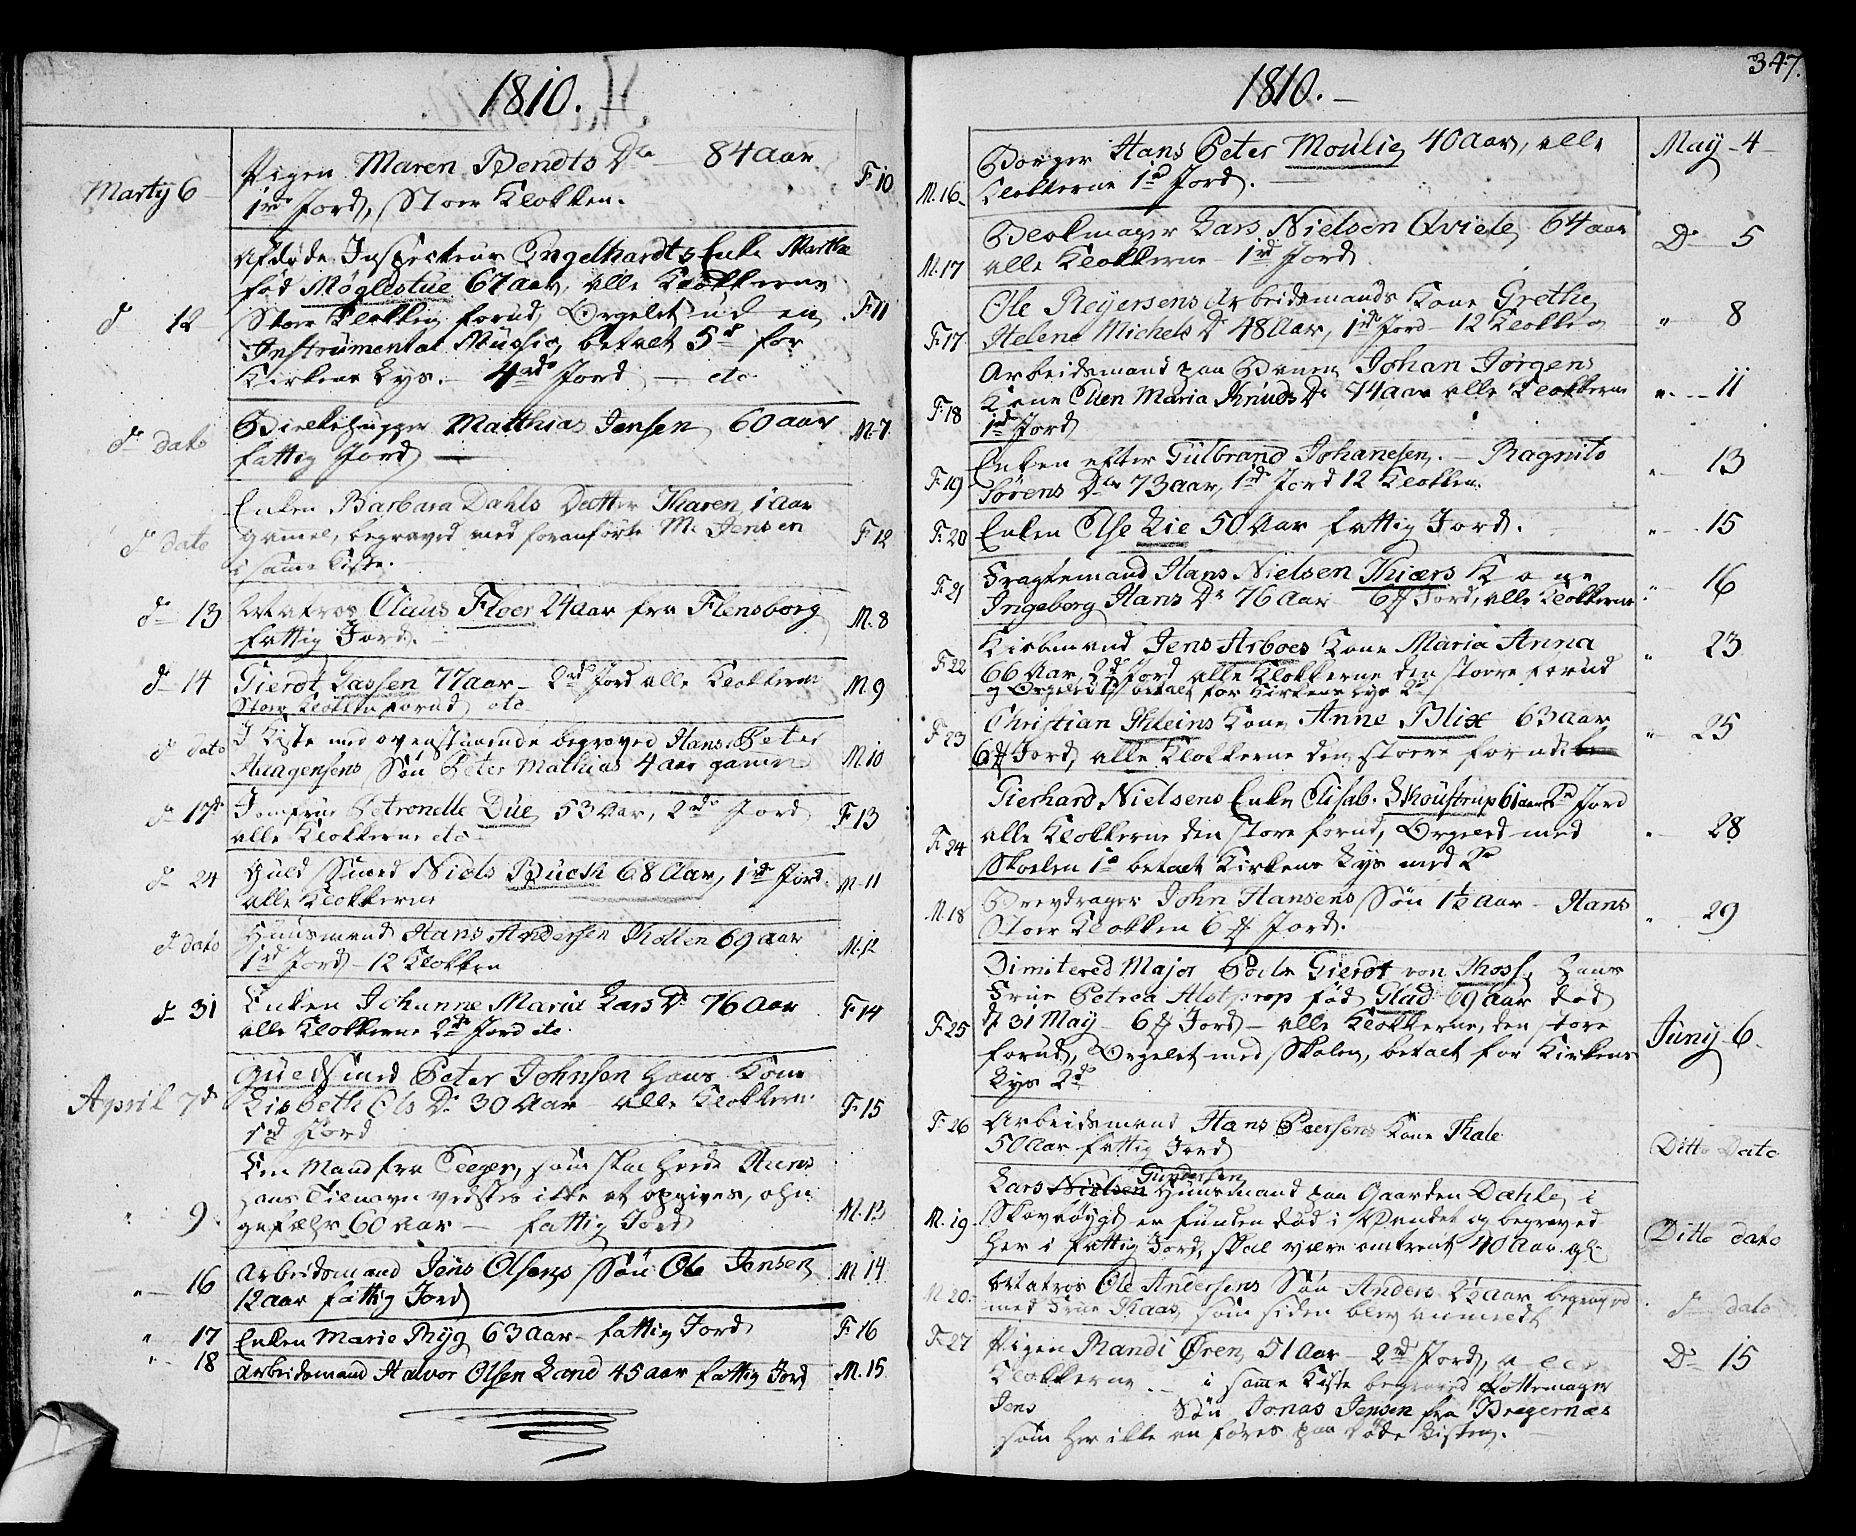 1810.
Marty 6
Pigen Maren Bendts Dr 84 aar
1rd Jord, Stor Klokken.
F. 10
d 12
Afdøde Inspecteur Engelhardts Enke Marthe
fød Møglestue 67 aar, alle Klokkerne
Store Klokken forud, Orgelet ud en
Instrumental Mussig, betalt 5rd for
Kirkens Lys. 4rde Jord etc
F. 11
d dato
Bielkehugger Matthias Jensen 60 aar
fattig Jord
M. 7
d dato
Enken Barbara Dahls Datter Karen, 1 aar
gamel, begraved med foranførte M. Jensen
i samme Kiste.
F. 12
d 13
Matros Claus Floer 24 aar fra Flensborg
fattig Jord.
M. 8
d 14
Gierdt Lassen 77 aar 2rd Jord alle Klokkerne
Stor Klokken forud etc
M. 9
d dato
I Kiste med ovenstaaende begraved Hans Peter
Haagensens Søn Peter Mathias 4 aar gammel
M. 10
d 17de
Jomfrue Petronelle Due 53 Aar, 2rds Jord
alle Klokkerne etc
F. 13
d 24
Guld Smed Niels Buch 68 Aar, 1rd Jord
alle Klokkerne
M. 11
d dato
Huusmand Hans Andersen Kolien 69 aar
1rd Jord 12 Klokken
M. 12
d 31
Enken Johanne Maria Lars Dr 76 aar
alle Klokkerne 2rd Jord etc.
F. 14
April 7de
Guldsmed Peter Johnsen Hans Kone
Lisbeth Ols Dr 30 Aar alle Klokkerne
1rd Jord
F. 15
" 9.
Een Mand fra Eeger, som skal hede Hans
hans Tilnavn vidstes ikke at opgives, ohn
gefæhr 60 Aar fattig Jord
M. 13
" 16
Arbeidsmand Jens Olsens Søn Ole Jensen
12 aar fattig Jord
M. 14
" 17
Enken Marie Ryg 63 aar fattig Jord
F. 16
" 18
Arbeidsmand Halvor Olsen Lond 45 aar fattig Jord
M. 15
347.
1810.
M. 16
Borger Hans Peter Moulig 40 Aar, alle
Klokkerne 1rd Jord.
May 4
M. 17
Blokmager Lars Nielsen Qviele 64 aar
alle Klokkerne 1rd Jord.
D 5
F. 17
Ole Reyersens Arbeidsmands Kone Grethe
Helene Michels Dr 48 Aar, 1rd Jord 12 Klokken
" 8
F. 18
Arbeidsmand paa Byen Johan Jørgens
Kone Ellen Maria Knuds Dr 74 aar alle Klokkerne
1rd Jord
" 11
F. 19
Enken efter Gulbrand Johanesen. Ragnild
Sørens Dr 73 aar, 1rd Jord 12 Klokken
" 13
F. 20
Enken Else Lie 50 Aar fattig Jord.
" 15
F. 21
Fragtemand Hans Nielsen Thiærs Kone
Ingeborg Hans Dr 76 Aar 6ß Jord, alle Klokkerne
" 16
F. 22
Kiøbmand Jens Arboes Kone Maria Anna
66 Aar, 2rd Jord alle Klokkerne den store forud
og Orgelet betalt for Kirkens Lys 2rd
" 23
F. 23
Christian Kleins Kone Anne Blix 63 aar
6ß Jord, alle Klokkerne den store forud
" 25
F. 24
Gierhard Nielsens Enke Elisab. Skoustrup 61 aar Jord
alle Klokkerne den store forud, Orgelet med
Skoelen betalt Kirkens Lys med 2rd
" 28
M. 18
Brevdrager John Hansens Søn 1½ aar Hans
Stor Klokken 6ß Jord.
" 29
F. 25
Dimitered Major Gierdt von Kross, hans
Frue Petrea Alstrup fød Glad 69 aar død
d 31 May 6ß Jord alle Klokkerne, den store
forud, Orgelet med Skolen, betalt for Kirkens
Lys 2rd
Juny 6.
F. 26
Arbeidsmand Hans Peersens Kone Thale
50 Aar fattig Jord
Ditto Dato
M. 19
Lars Nielsen Gundersen Huusmand paa Gaarden Dahle i
Skovbøygd er funden død i Vandet og begraved
her i fattig Jord, skal være omtrent 40 Aar gl.
Ditto dato
M. 20.
Matros Ole Andersens Søn Anders 2½ aar begraved
med Frue Kaas, som siden blev anmeldt
d dato
F. 27
Pigen Randi Øren 51 Aar 2rd Jord, alle
Klokkerne i samme Kiste begraved Pottemager
Jens Søn Jonas Jensen fra Bragernæs
som her ikke anføres paa Døde Listen.
D 15